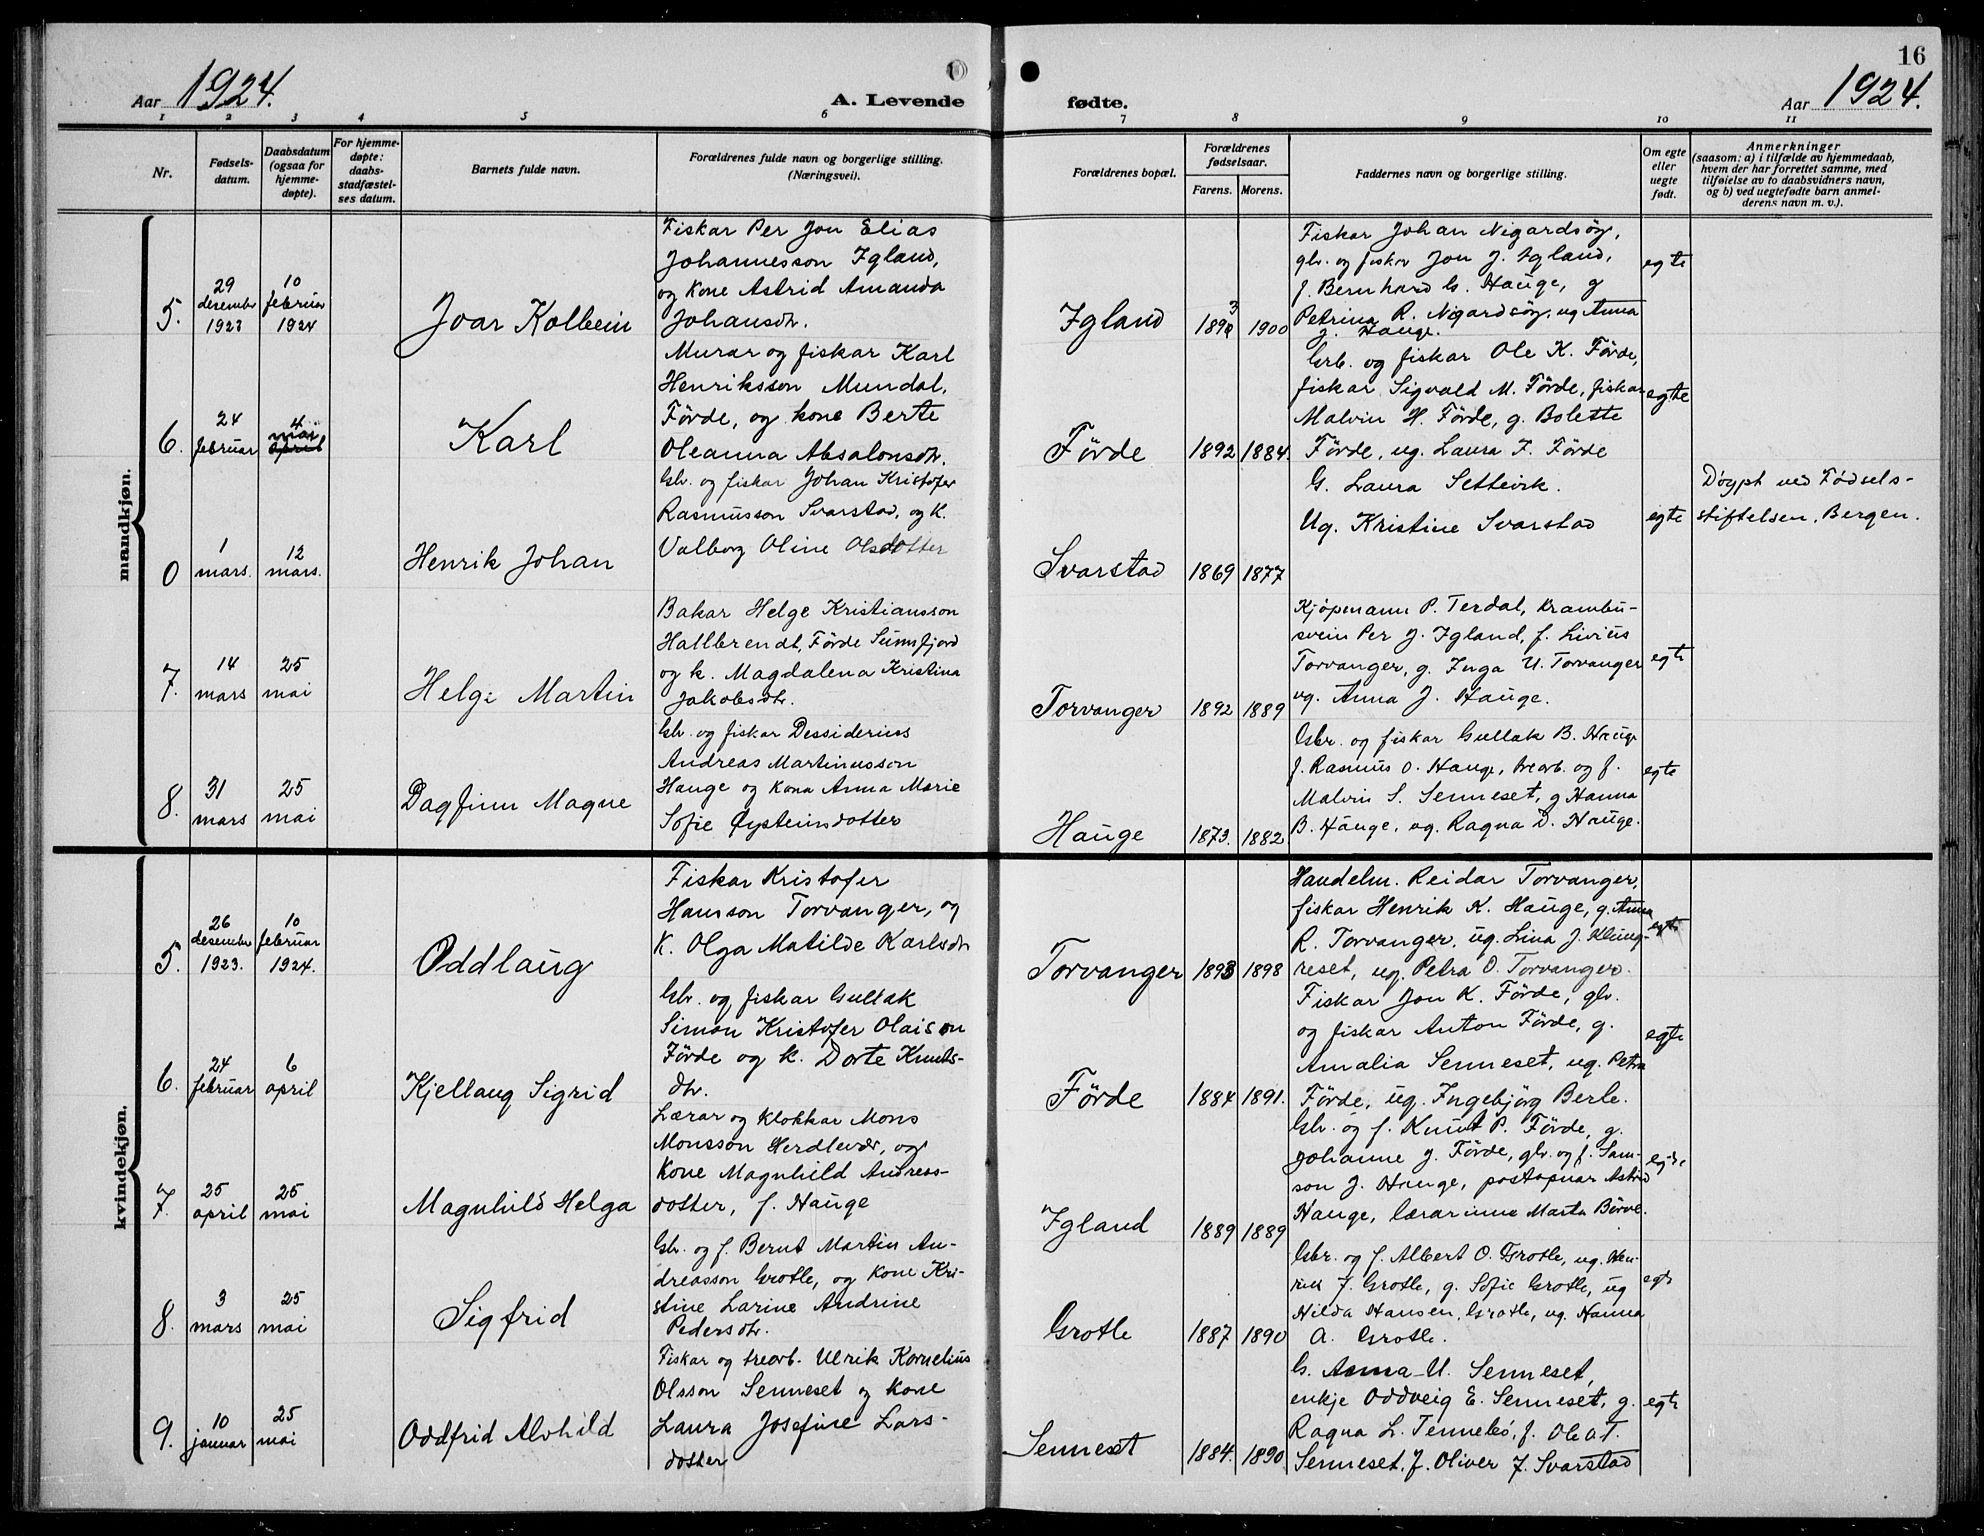 16
Aar 1924.
A. Levende
fødte.
Aar 1924.
1 2 3 4 5 6 7 8 9 10 11
Nr.
Fødsels-
datum.
Daabsdatum
(ogsaa for
hjemme-
døpte).
For hjemme-
døpte:
daabs-
stadfæstel-
ses datum.
Barnets fulde navn.
Forældrenes fulde navn og borgerlige stilling.
(Næringsvei).
Forældrenes bopæl.
Forældrenes
fødselsaar.
Farens. Morens.
Faddernes navn og borgerlige stilling.
Om egte
eller
uegte
født.
Anmerkninger
(saasom: a) i tilfælde av hjemmedaab,
hvem der har forrettet samme, med
tilføielse av to daabsvidners navn,
og b) ved uegtefødte barn anmel-
derens navn m. v.).
mandkjøn.
5.
29
desember
1923
10
februar
1924
Joar Kolbein
Fiskar Per Jon Elias
Johannesson Igland,
og Kone Astrid Amanda
Johansdtr.
Igland
1893 1900
Fiskar Johan Nigardsøy,
gbr. og fiskar Jon J. Igland,
f. Bernhard G. Hauge, g
Petrina R. Nigardsøy, ug Anna
J. Hauge.
egte
6.
24
februar
4
mai
april
Karl
Murar og fiskar Karl
Henriksson Mundal,
Förde, og kone Berte
Oleanna Absalonsdtr.
Förde
1892 1884.
Grb. og fiskar Ole K. Förde,
fiskar Sigvald M. Förde, fiskar
Malvin H. Förde, g. Bolette
Förde, ug. Laura F. Förde
egte
0
1
mars.
12
mars.
Henrik Johan
Gbr. og fiskar Johan Kristofer
Rasmusson Svarstad, og K.
Valborg Oline Olsdotter
Svarstad
1869 1877
G. Laura Settevik.
Ug. Kristine Svarstad
egte
Døypt ved Fødsels-
stiftelsen, Bergen.
7.
14
mars
25
mai
Helge Martin
Bakar Helge Kristiansson
Hallbrendt, Förde Sunnfjord
og k. Magdalena Kristina
Jakobsdtr.
Torvanger
1892 1889
Kjøpmann P. Terdal, Krambu-
svein Per J. Igland, f. Livius
Torvanger, g. Inga U. Torvanger
ug. Anna J. Hauge.
egte
8.
31
mars
25
mai
Dagfinn Magne
Gbr. og fiskar Dessiderius
Andreas Martinusson
Hauge og Kona Anna Marie
Sofie Øysteinsdotter
Hauge
1873. 1882
Gbr. og fiskar Gullak B. Hauge
f. Rasmus O. Hauge, trearb. og f.
Malvin S. Senneset, g Hanna
B. Hauge, ug. Ragna D. Hauge.
egte
kvindekjøn.
5.
26
desember
1923.
10
februar
1924.
Oddlaug
Fiskar Kristofer
Hansson Torvanger, og
K. Olga Matilde Karlsdtr
Torvanger
1893 1898
Handelsm. Reidar Torvanger,
fiskar Henrik K. Hauge, g. Anna
R. Torvanger, ug. Lina J. Klung-
reset, ug. Petra O. Torvanger.
egte
6.
24
februar
6
april
Kjellaug Sigrid
Gbr. og fiskar Gullak
Simon Kristofer Olaison
Förde og k. Dorte Knuts-
dtr.
Förde
1884 1891.
Fiskar Jon K. Förde, gbr.
og fiskar Anton Förde, g.
Amalia Senneset, ug. Petra
Förde, ug. Ingebjörg Berle.
egte
7.
25
april
25
mai
Magnhild Helga
Lærar og Klokkar Mons
Monsson Herdlevær, og
Kone Magnhild Andreas-
dotter, f. Hauge
Igland
1889 1889
Gbr. og f. Knut P. Förde, g.
Johanne J. Förde, gbr. og f. Sam-
son J. Hauge, postopnar Astrid
Hauge, lærarinne Marta Börve.
egte
8.
3
mars
25
mai
Sigfrid
Gbr. og f. Bernt Martin An-
dreasson Grotle, og Kone Kri-
stine Larine Andrine
Pedersdtr.
Grotle
1887 1890
Gbr. og f. Albert O. Grotle, ug. Hen-
rik J. Grotle, g. Sofie Grotle, ug
Hilda Hansen, Grotle, ug. Hanna
A. Grotle.
egte
9.
10
januar
25
mai
Oddfrid Alvhild
Fiskar og trearb. Ulrik Kornelius
Olsson Senneset og Kone
Laura Josefine Lars-
dotter
Senneset
1884. 1890.
G. Anna U. Senneset,
enkje Oddveig E. Senneset, g.
Ragna L. Tennebö, f. Ole A T.
Senneset, f. Oliver J. Svarstad
egte